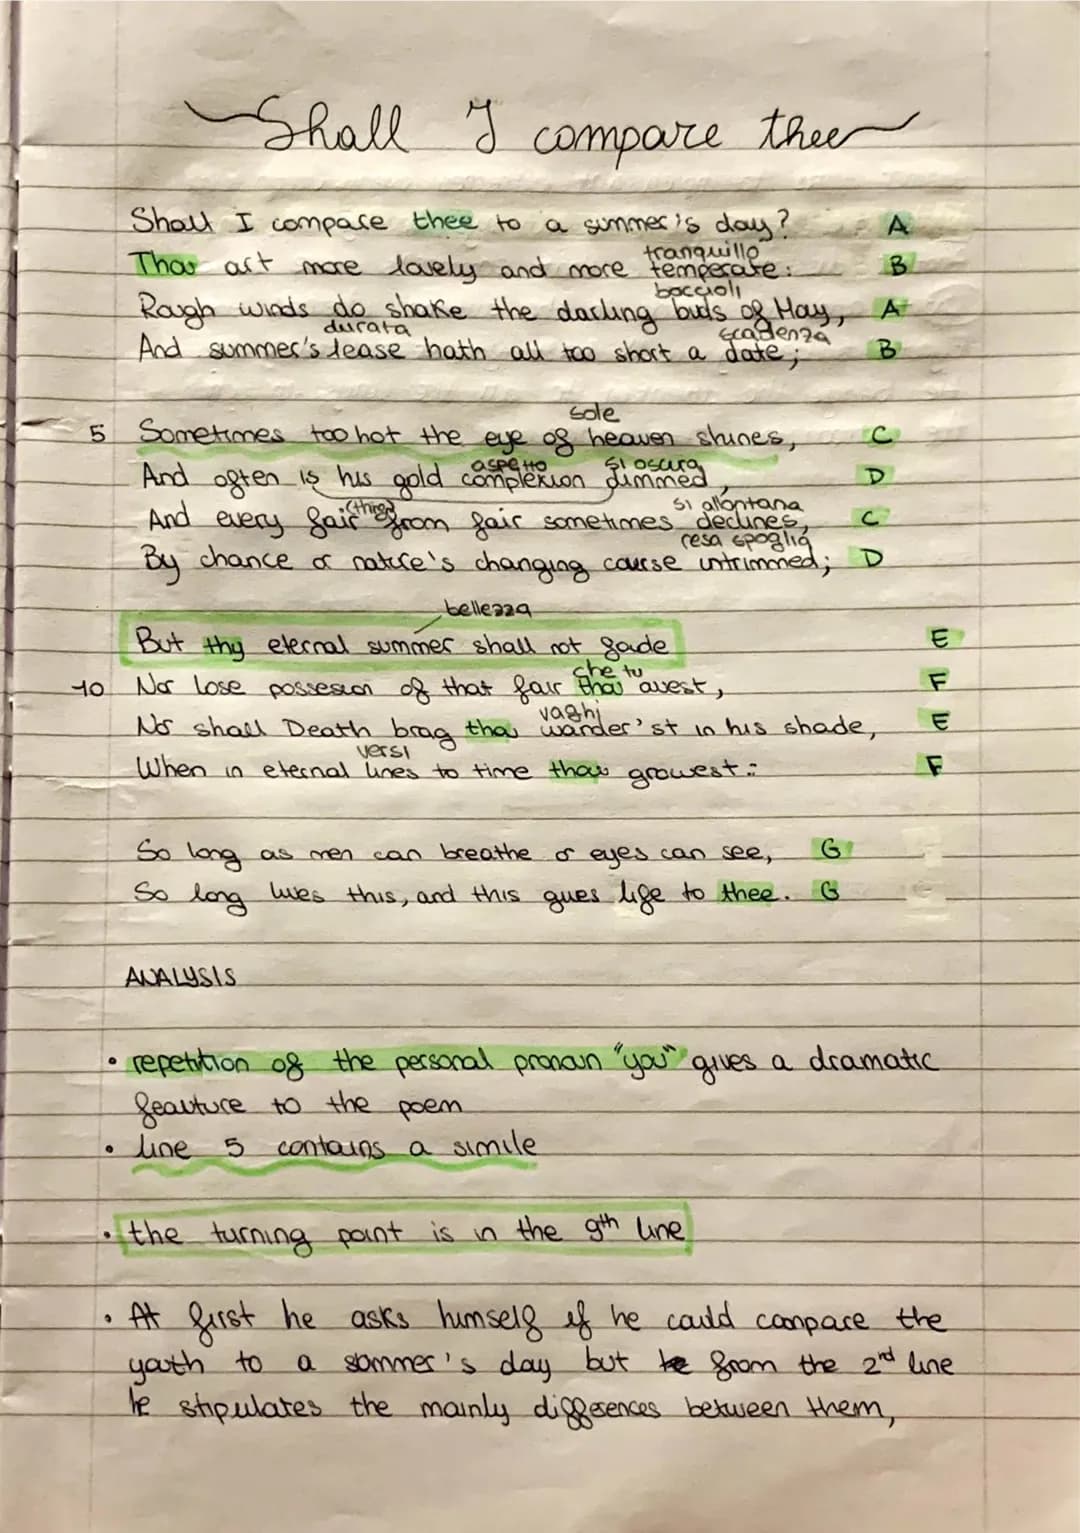 Shall I compare thee
Shall I compare thee to a summer's day? A
tranquillo
Thou art more lovely and more temperate: B
boccioli
Rough winds do shake the darling buds of May, A
durata scadenza
And summer's lease hath all too short a date; B
sole
5 Sometimes too hot the eye of heaven shines, C
aspetto si oscura
And often is his gold complexion dimmed, D
(thing) si allontana
And every fair from fair sometimes declines, C
resa spoglia
By chance or nature's changing course untrimmed; D
bellezza
But thy eternal summer shall not fade E
che tu
10 Nor lose possesion of that fair thou owest, F
vaghi
Nor shall Death brag thou wander'st in his shade, E
versi
When in eternal lines to time thou growest: F
So long as men can breathe or eyes can see, G
So long lives this, and this gives life to thee. G
ANALYSIS
• repetition of the personal pronoun "you" gives a dramatic
feauture to the poem
• line 5 contains a simile
• the turning point is in the 9th line
• At first he asks himself if he could compare the
youth to a sommer's day but he from the 2nd line
he stipulates the mainly differences between them,